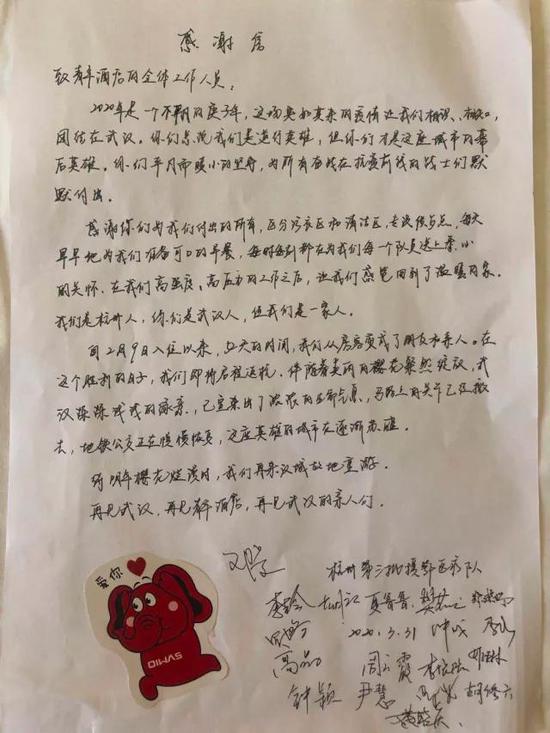 感谢信
致青年酒店的全体工作人员：
2020年是一个不平凡的庚子年，这场突如其来的疫情让我们相识、相知，
团结在武汉。你们总说我们是逆行英雄，但你们才是这座城市的幕
后英雄。你们平凡而暖心的坚守，为所有奋战在抗疫前线的战士们默
默付出。
感谢你们为我们付出的所有，区分污染区和清洁区，专设，每天
早早地为我们准备可口的早餐，每时每刻都在为我们每一个队员送上亲心
的关怀。在我们高强度、高压力的工作之后，让我们感觉回到了温暖的家。
我们是杭州人，你们是武汉人，但我们是一家人。
自2月9日入住以来，52天的时间，我们从房客变成了朋友和亲人。在
这个胜利的日子，我们即将启程返杭。伴随着美丽的樱花粲然绽放，武
汉的凉意，已宣染出了浓浓的生命气息，马路上的关卡已经撤
去，地铁公交正在慢慢恢复，这座英雄的城市在逐渐苏醒。
待明年樱花烂漫时，我们再来汉城故地重游。
再见武汉，再见青年酒店，再见武汉的亲人们。
杭州第三批援鄂医疗队
夏青青
2020.3.31
高
周霞
钟颖 尹慧
爱你
SVMIO